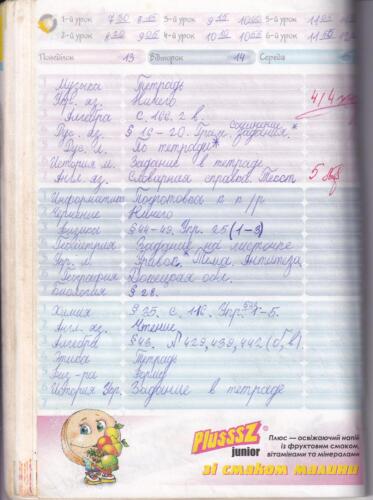 1-й урок 7⁵⁰ 8³⁵ 3-й урок 9 10 5-й урок 11 11
2-й урок 8 9 4-й урок 10 10 6-й урок 11 12
Понеділок 13 Вівторок 14 Середа
Музыка Тетрадь
Укр. яз. Ничего
Алгебра с. 166, 2 в. 4/4
Рус. яз. § 16-20. Грам. задания.* сочинение
Рус. л. По тетради*
История м. Задание в тетрадь
Англ. яз. Словарная справка. Тест 5
Информатика Подготовка к п/р
Черчение Ничего
Физика § 44-49. Упр. 25 (1-3)
Геометрия Задание на листочке
Укр. л.
География Донецкая обл.
Биология § 28.
Химия § 25. с. 116. Упр. 1-5.
Англ. яз. Чтение
Алгебра § 16. № 429, 439, 442 (б, в)
Этика Тетрадь
Физ-ра Форма
История Укр. Задание в тетраде
PlusssZ®
junior
Плюс — освіжаючий напій
із фруктовим смаком,
вітамінами та мінералами
зі смаком малини